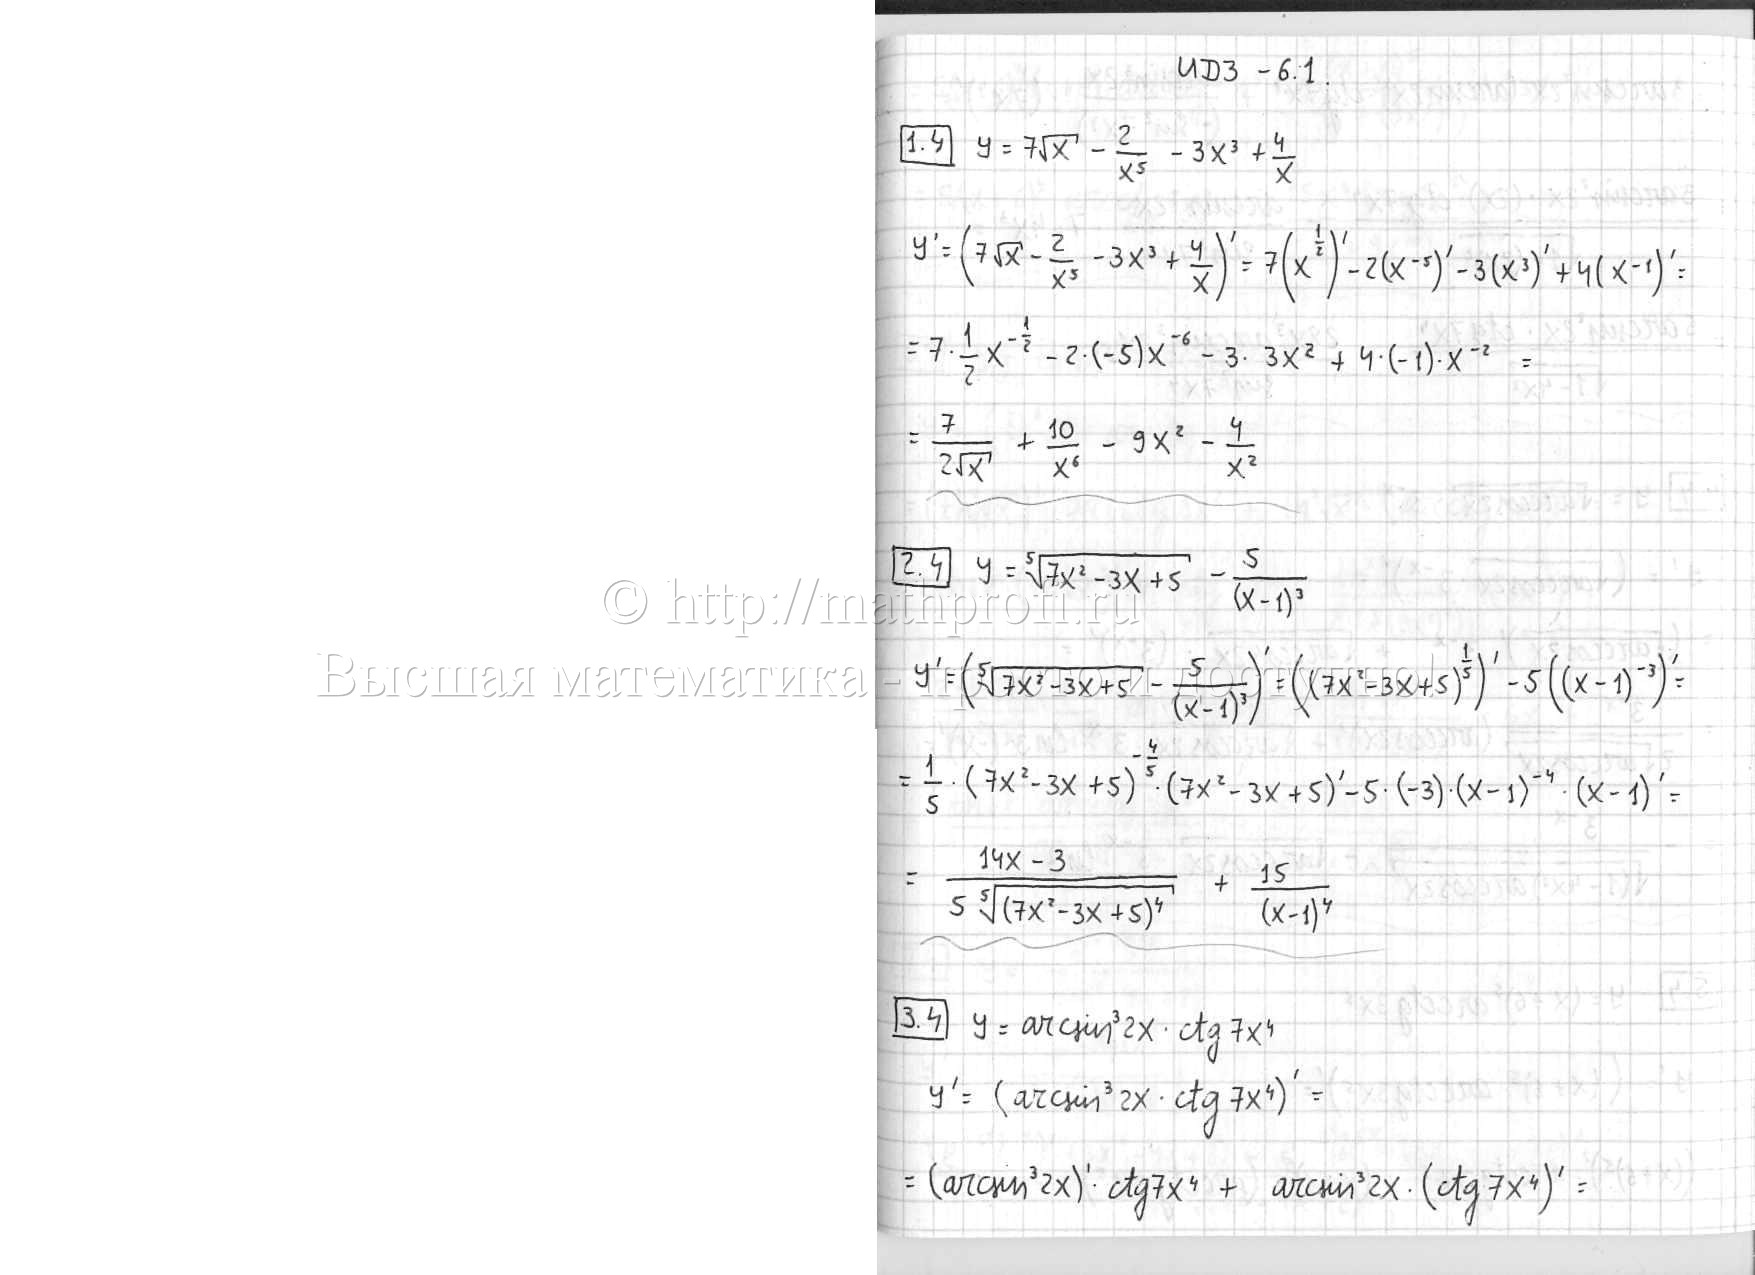 ИДЗ - 6.1.
1.4 y = 7√x - 2/x⁵ - 3x³ + 4/x
y' = (7√x - 2/x⁵ - 3x³ + 4/x)' = 7(x^(1/2))' - 2(x⁻⁵)' - 3(x³)' + 4(x⁻¹)' =
= 7 · 1/2 x^(-1/2) - 2·(-5)x⁻⁶ - 3 · 3x² + 4·(-1)·x⁻² =
= 7/(2√x) + 10/x⁶ - 9x² - 4/x²
2.4 y = ⁵√(7x² - 3x + 5) - 5/(x-1)³
© http://mathprofi.ru
Высшая математика - просто и доступно!
y' = (⁵√(7x² - 3x + 5) - 5/(x-1)³)' = ((7x² - 3x + 5)^(1/5))' - 5((x-1)⁻³)' =
= 1/5 · (7x² - 3x + 5)^(-4/5) · (7x² - 3x + 5)' - 5·(-3)·(x-1)⁻⁴ · (x-1)' =
= (14x - 3)/(5 ⁵√((7x² - 3x + 5)⁴)) + 15/(x-1)⁴
3.4 y = arcsin³2x · ctg 7x⁴
y' = (arcsin³2x · ctg 7x⁴)' =
= (arcsin³2x)' · ctg7x⁴ + arcsin³2x · (ctg 7x⁴)' =